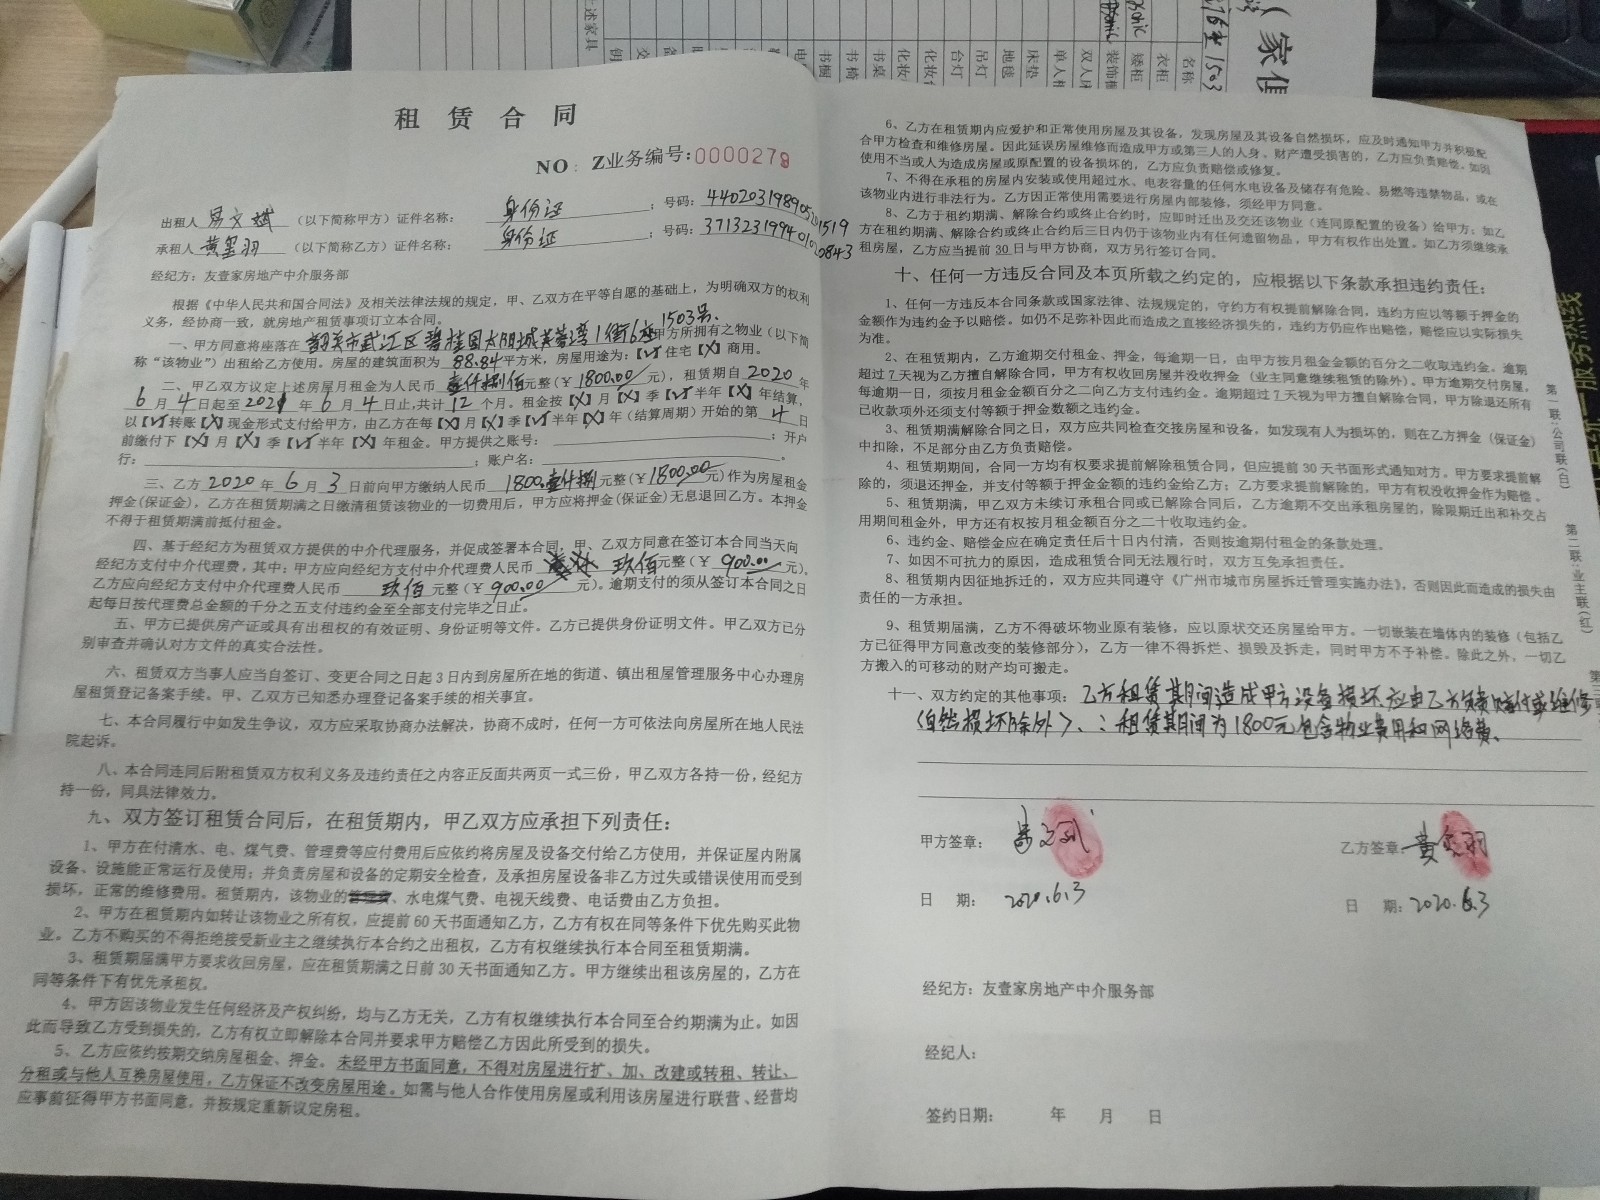 租赁合同
NO：Z业务编号:0000279
出租人 易文斌 （以下简称甲方）证件名称： 身份证 ；号码：440203198905201519
承租人 黄 羽 （以下简称乙方）证件名称： 身份证 ；号码：371323199401020843
经纪方：友壹家房地产中介服务部
根据《中华人民共和国合同法》及相关法律法规的规定，甲、乙双方在平等自愿的基础上，为明确双方的权利
义务，经协商一致，就房地产租赁事项订立本合同。
一、甲方同意将座落在 韶关市武江区碧桂园太阳城芙蓉湾1街6座1503号. 甲方所拥有之物业（以下简
称“该物业”）出租给乙方使用。房屋的建筑面积为 88.84 平方米，房屋用途为：【√】住宅【X】商用。
二、甲乙双方议定上述房屋月租金为人民币 壹仟捌佰 元整（￥ 1800.00 元），租赁期自 2020 年
6 月 4 日起至 2021 年 6 月 4 日止,共计 12 个月。租金按【X】月【X】季【√】半年【X】年结算，
以【√】转账【X】现金形式支付给甲方，由乙方在每【X】月【X】季【√】半年【X】年（结算周期）开始的第 4 日
前缴付下【X】月【X】季【√】半年【X】年租金。甲方提供之账号： ；开户
行： ；账户名： 。
三、乙方 2020 年 6 月 3 日前向甲方缴纳人民币 1800.壹仟捌 元整(￥1800.00 元)作为房屋租金
押金(保证金)，乙方在租赁期满之日缴清租赁该物业的一切费用后，甲方应将押金(保证金)无息退回乙方。本押金
不得于租赁期满前抵付租金。
四、基于经纪方为租赁双方提供的中介代理服务，并促成签署本合同，甲、乙双方同意在签订本合同当天向
经纪方支付中介代理费,其中:甲方应向经纪方支付中介代理费人民币 玖佰 元整（￥ 900.00 元），
乙方应向经纪方支付中介代理费人民币 玖佰 元整（￥ 900.00 元)。逾期支付的须从签订本合同之日
起每日按代理费总金额的千分之五支付违约金至全部支付完毕之日止。
五、甲方已提供房产证或具有出租权的有效证明、身份证明等文件。乙方已提供身份证明文件。甲乙双方已分
别审查并确认对方文件的真实合法性。
六、租赁双方当事人应当自签订、变更合同之日起3日内到房屋所在地的街道、镇出租屋管理服务中心办理房
屋租赁登记备案手续。甲、乙双方已知悉办理登记备案手续的相关事宜。
七、本合同履行中如发生争议，双方应采取协商办法解决，协商不成时，任何一方可依法向房屋所在地人民法
院起诉。
八、本合同连同后附租赁双方权利义务及违约责任之内容正反面共两页一式三份，甲乙双方各持一份，经纪方
持一份，同具法律效力。
九、双方签订租赁合同后，在租赁期内，甲乙双方应承担下列责任：
1、甲方在付清水、电、煤气费、管理费等应付费用后应依约将房屋及设备交付给乙方使用，并保证屋内附属
设备、设施能正常运行及使用；并负责房屋和设备的定期安全检查，及承担房屋设备非乙方过失或错误使用而受到
损坏，正常的维修费用。租赁期内，该物业的管理费、水电煤气费、电视天线费、电话费由乙方负担。
2、甲方在租赁期内如转让该物业之所有权，应提前60天书面通知乙方，乙方有权在同等条件下优先购买此物
业。乙方不购买的不得拒绝接受新业主之继续执行本合约之出租权，乙方有权继续执行本合同至租赁期满。
3、租赁期届满甲方要求收回房屋，应在租赁期满之日前30天书面通知乙方。甲方继续出租该房屋的，乙方在
同等条件下有优先承租权。
4、甲方因该物业发生任何经济及产权纠纷，均与乙方无关，乙方有权继续执行本合同至合约期满为止。如因
此而导致乙方受到损失的，乙方有权立即解除本合同并要求甲方赔偿乙方因此所受到的损失。
5、乙方应依约按期交纳房屋租金、押金。未经甲方书面同意，不得对房屋进行扩、加、改建或转租、转让、
分租或与他人互换房屋使用，乙方保证不改变房屋用途。如需与他人合作使用房屋或利用该房屋进行联营、经营均
应事前征得甲方书面同意，并按规定重新议定房租。
6、乙方在租赁期内应爱护和正常使用房屋及其设备，发现房屋及其设备自然损坏，应及时通知甲方并积极配
合甲方检查和维修房屋。因此延误房屋维修而造成甲方或第三人的人身、财产遭受损害的，乙方应负责赔偿。如因
使用不当或人为造成房屋或原配置的设备损坏的，乙方应负责赔偿或修复。
7、不得在承租的房屋内安装或使用超过水、电表容量的任何水电设备及储存有危险、易燃等违禁物品，或在
该物业内进行非法行为。乙方因正常使用需要进行房屋内部装修，须经甲方同意。
8、乙方于租约期满、解除合约或终止合约时，应即时迁出及交还该物业（连同原配置的设备）给甲方；如乙
方在租约期满、解除合约或终止合约后三日内仍于该物业内有任何遗留物品，甲方有权作出处置。如乙方须继续承
租房屋，乙方应当提前30日与甲方协商，双方另行签订合同。
十、任何一方违反合同及本页所载之约定的，应根据以下条款承担违约责任：
1、任何一方违反本合同条款或国家法律、法规规定的，守约方有权提前解除合同，违约方应以等额于押金的
金额作为违约金予以赔偿。如仍不足弥补因此而造成之直接经济损失的，违约方仍应作出赔偿，赔偿应以实际损失
为准。
2、在租赁期内，乙方逾期交付租金、押金，每逾期一日，由甲方按月租金金额的百分之二收取违约金。逾期
超过7天视为乙方擅自解除合同，甲方有权收回房屋并没收押金（业主同意继续租赁的除外）。甲方逾期交付房屋，
每逾期一日，须按月租金金额百分之二向乙方支付违约金。逾期超过7天视为甲方擅自解除合同，甲方除退还所有
已收款项外还须支付等额于押金数额之违约金。
3、租赁期满解除合同之日，双方应共同检查交接房屋和设备，如发现有人为损坏的，则在乙方押金（保证金）
中扣除，不足部分由乙方负责赔偿。
4、租赁期期间，合同一方均有权要求提前解除租赁合同，但应提前30天书面形式通知对方。甲方要求提前解
除的，须退还押金，并支付等额于押金金额的违约金给乙方；乙方要求提前解除的，甲方有权没收押金作为赔偿。
5、租赁期满，甲乙双方未续订承租合同或已解除合同后，乙方逾期不交出承租房屋的，除限期迁出和补交占
用期间租金外，甲方还有权按月租金额百分之二十收取违约金。
6、违约金、赔偿金应在确定责任后十日内付清，否则按逾期付租金的条款处理。
7、如因不可抗力的原因，造成租赁合同无法履行时，双方互免承担责任。
8、租赁期内因征地拆迁的，双方应共同遵守《广州市城市房屋拆迁管理实施办法》，否则因此而造成的损失由
责任的一方承担。
9、租赁期届满，乙方不得破坏物业原有装修，应以原状交还房屋给甲方。一切嵌装在墙体内的装修（包括乙
方已征得甲方同意改变的装修部分），乙方一律不得拆烂、损毁及拆走，同时甲方不予补偿。除此之外，一切乙
方搬入的可移动的财产均可搬走。
十一、双方约定的其他事项：乙方租赁期间造成甲方设备损坏.应由乙方负责赔付或维修
（自然损坏除外）、：租赁期间为1800元包含物业费用和网络费、
甲方签章：
乙方签章：
日 期： 2020.6.3
日 期：2020.6.3
经纪方：友壹家房地产中介服务部
经纪人：
签约日期： 年 月 日
第一联：公司联(白)
第二联：业主联(红)
第三
服务热线
（家俱
1503
名称
衣柜
矮柜
装饰柜
双人床
单人
床垫
地毯
吊灯
台灯
化妆
化妆
书桌
书椅
书橱
上述家具